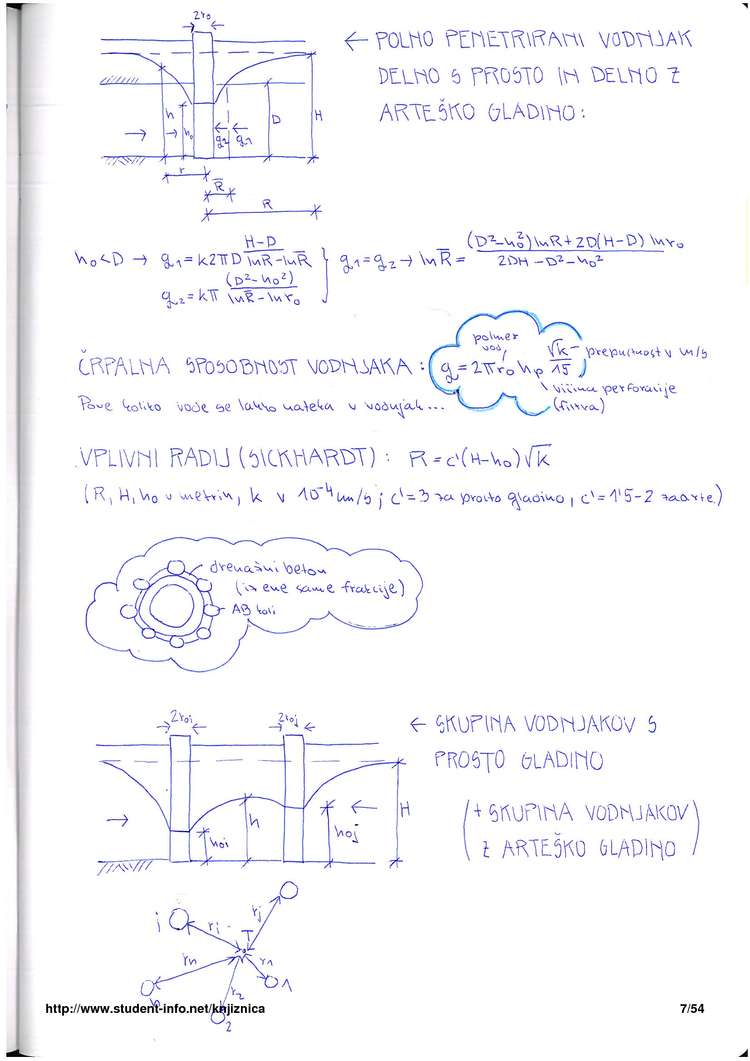 2r₀
← POLNO PENETRIRANI VODNJAK
DELNO S PROSTO IN DELNO Z
ARTEŠKO GLADINO:
h h₀ q₂ q₁ D H
r
R̅
R
h₀<D → q₁ = k2πD (H-D)/(lnR-lnR̅) } q₁=q₂ → lnR̅ = ((D²-h₀²)lnR+2D(H-D)lnr₀)/(2DH-D²-h₀²)
q₂ = kπ (D²-h₀²)/(lnR̅-lnr₀)
polmer
vod.
ČRPALNA SPOSOBNOST VODNJAKA: q = 2πr₀ hp √k/15 - prepustnost v m/s
višina perforacije
Pove koliko vode se lahko nateka v vodnjak... (filtra)
VPLIVNI RADIJ (SICKHARDT): R = c'(H-h₀)√k
(R, H, h₀ v metrih, k v 10⁻⁴ cm/s; c'=3 za prosto gladino, c'=1'5-2 za arte.)
drenažni beton
(iz ene same frakcije)
AB koli
2r₀i 2r₀j
← SKUPINA VODNJAKOV S
PROSTO GLADINO
(+ SKUPINA VODNJAKOV
Z ARTEŠKO GLADINO)
h₀i h h₀j H
i ri rj j
T
rn r1 1
n r2
2
http://www.student-info.net/knjiznica 7/54